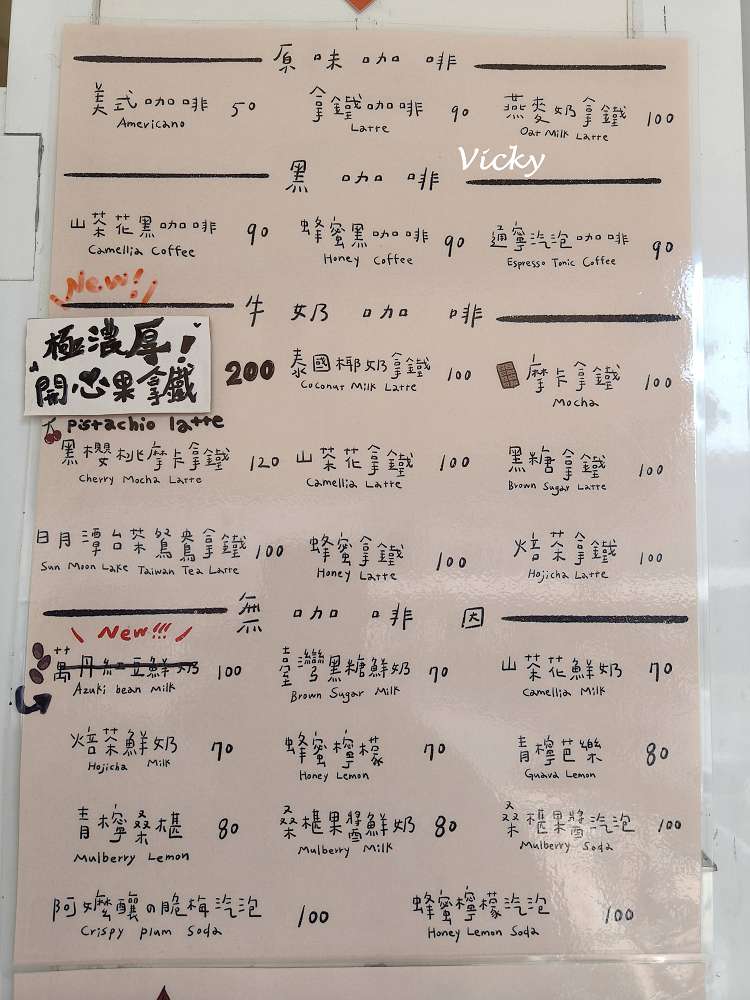 原味咖啡
美式咖啡 50 拿鐵咖啡 90 燕麥奶拿鐵 100
Americano Latte Oat Milk Latte
Vicky
黑咖啡
山茶花黑咖啡 90 蜂蜜黑咖啡 90 通寧汽泡咖啡 90
Camellia Coffee Honey Coffee Espresso Tonic Coffee
New!
牛奶咖啡
極濃厚!
開心果拿鐵 200 泰國椰奶拿鐵 100 摩卡拿鐵 100
Coconut Milk Latte Mocha
pistachio latte
黑櫻桃摩卡拿鐵 120 山茶花拿鐵 100 黑糖拿鐵 100
Cherry Mocha Latte Camellia Latte Brown Sugar Latte
日月潭台茶鴛鴦拿鐵 100 蜂蜜拿鐵 100 焙茶拿鐵 100
Sun Moon Lake Taiwan Tea Latte Honey Latte Hojicha Latte
無咖啡因
New!!!
萬丹紅豆鮮奶 100 臺灣黑糖鮮奶 70 山茶花鮮奶 70
Azuki bean Milk Brown Sugar Milk Camellia Milk
焙茶鮮奶 70 蜂蜜檸檬 70 青檸芭樂 80
Hojicha Milk Honey Lemon Guava Lemon
青檸桑椹 80 桑椹果醬鮮奶 80 桑椹果醬汽泡 100
Mulberry Lemon Mulberry Milk Mulberry Soda
阿嬤釀の脆梅汽泡 100 蜂蜜檸檬汽泡 100
Crispy plum Soda Honey Lemon Soda